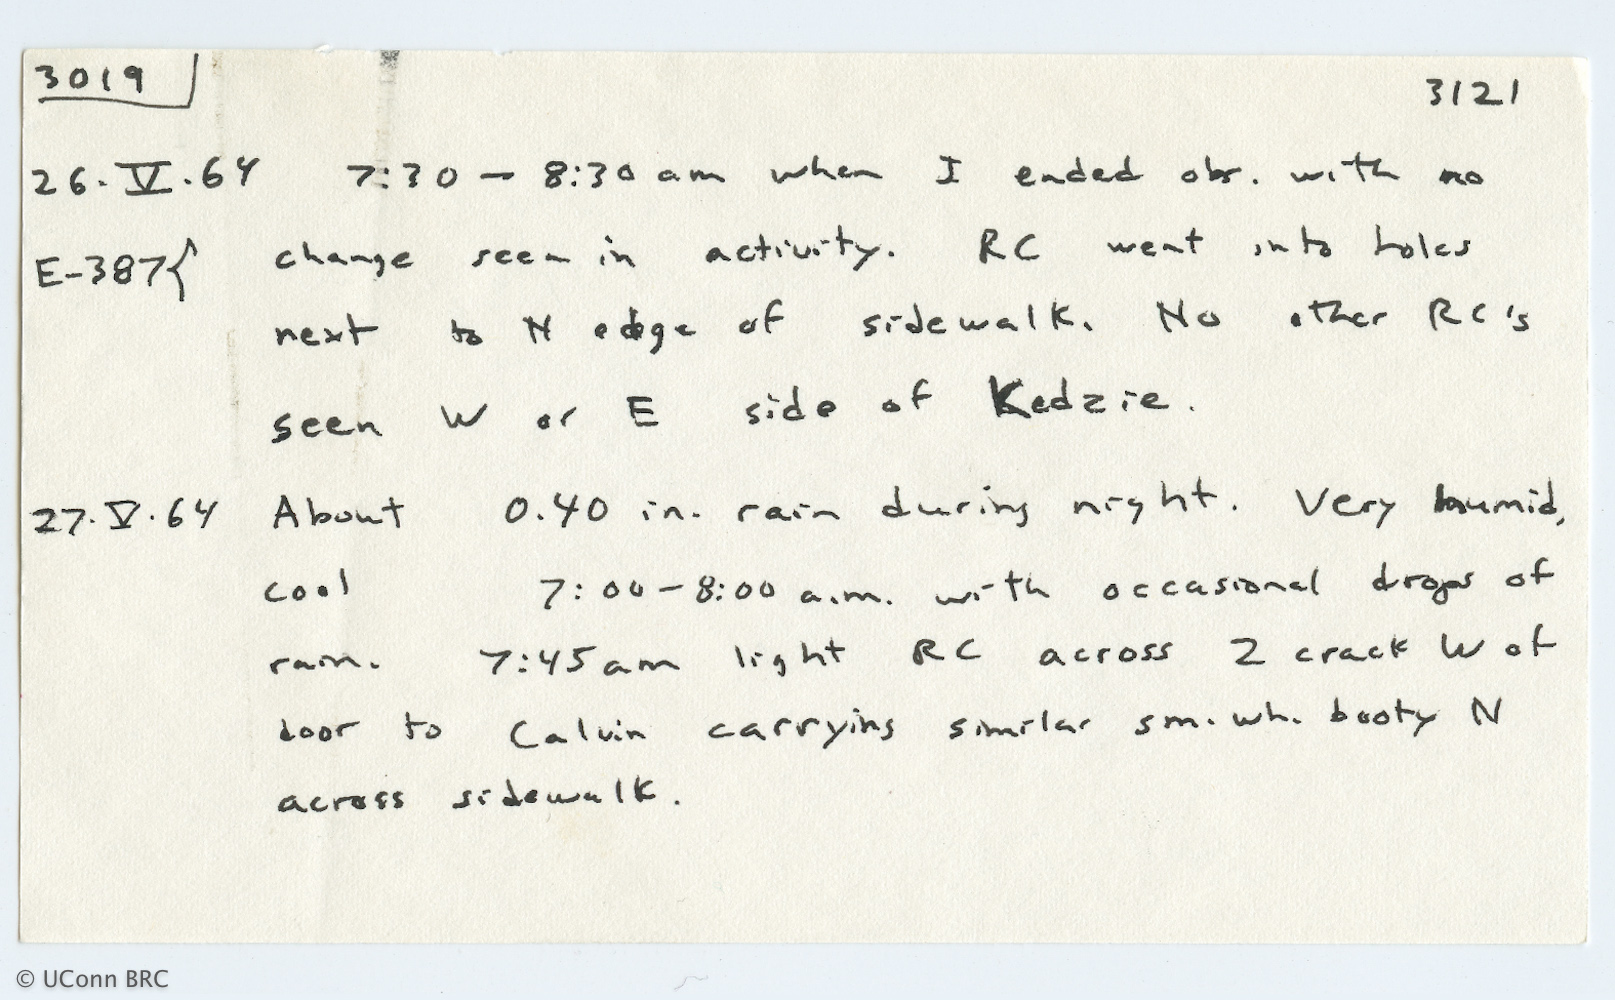 3019 3121
26.V.64 7:30 - 8:30 am when I ended obs. with no
E-387{ change seen in activity. RC went into holes
next to N edge of sidewalk. No other RC's
seen W or E side of Kedzie.
27.V.64 About 0.40 in. rain during night. Very humid,
cool 7:00-8:00 a.m. with occasional drops of
rain. 7:45 am light RC across 2 crack W of
door to Calvin carrying similar sm. wh. booty N
across sidewalk.
© UConn BRC